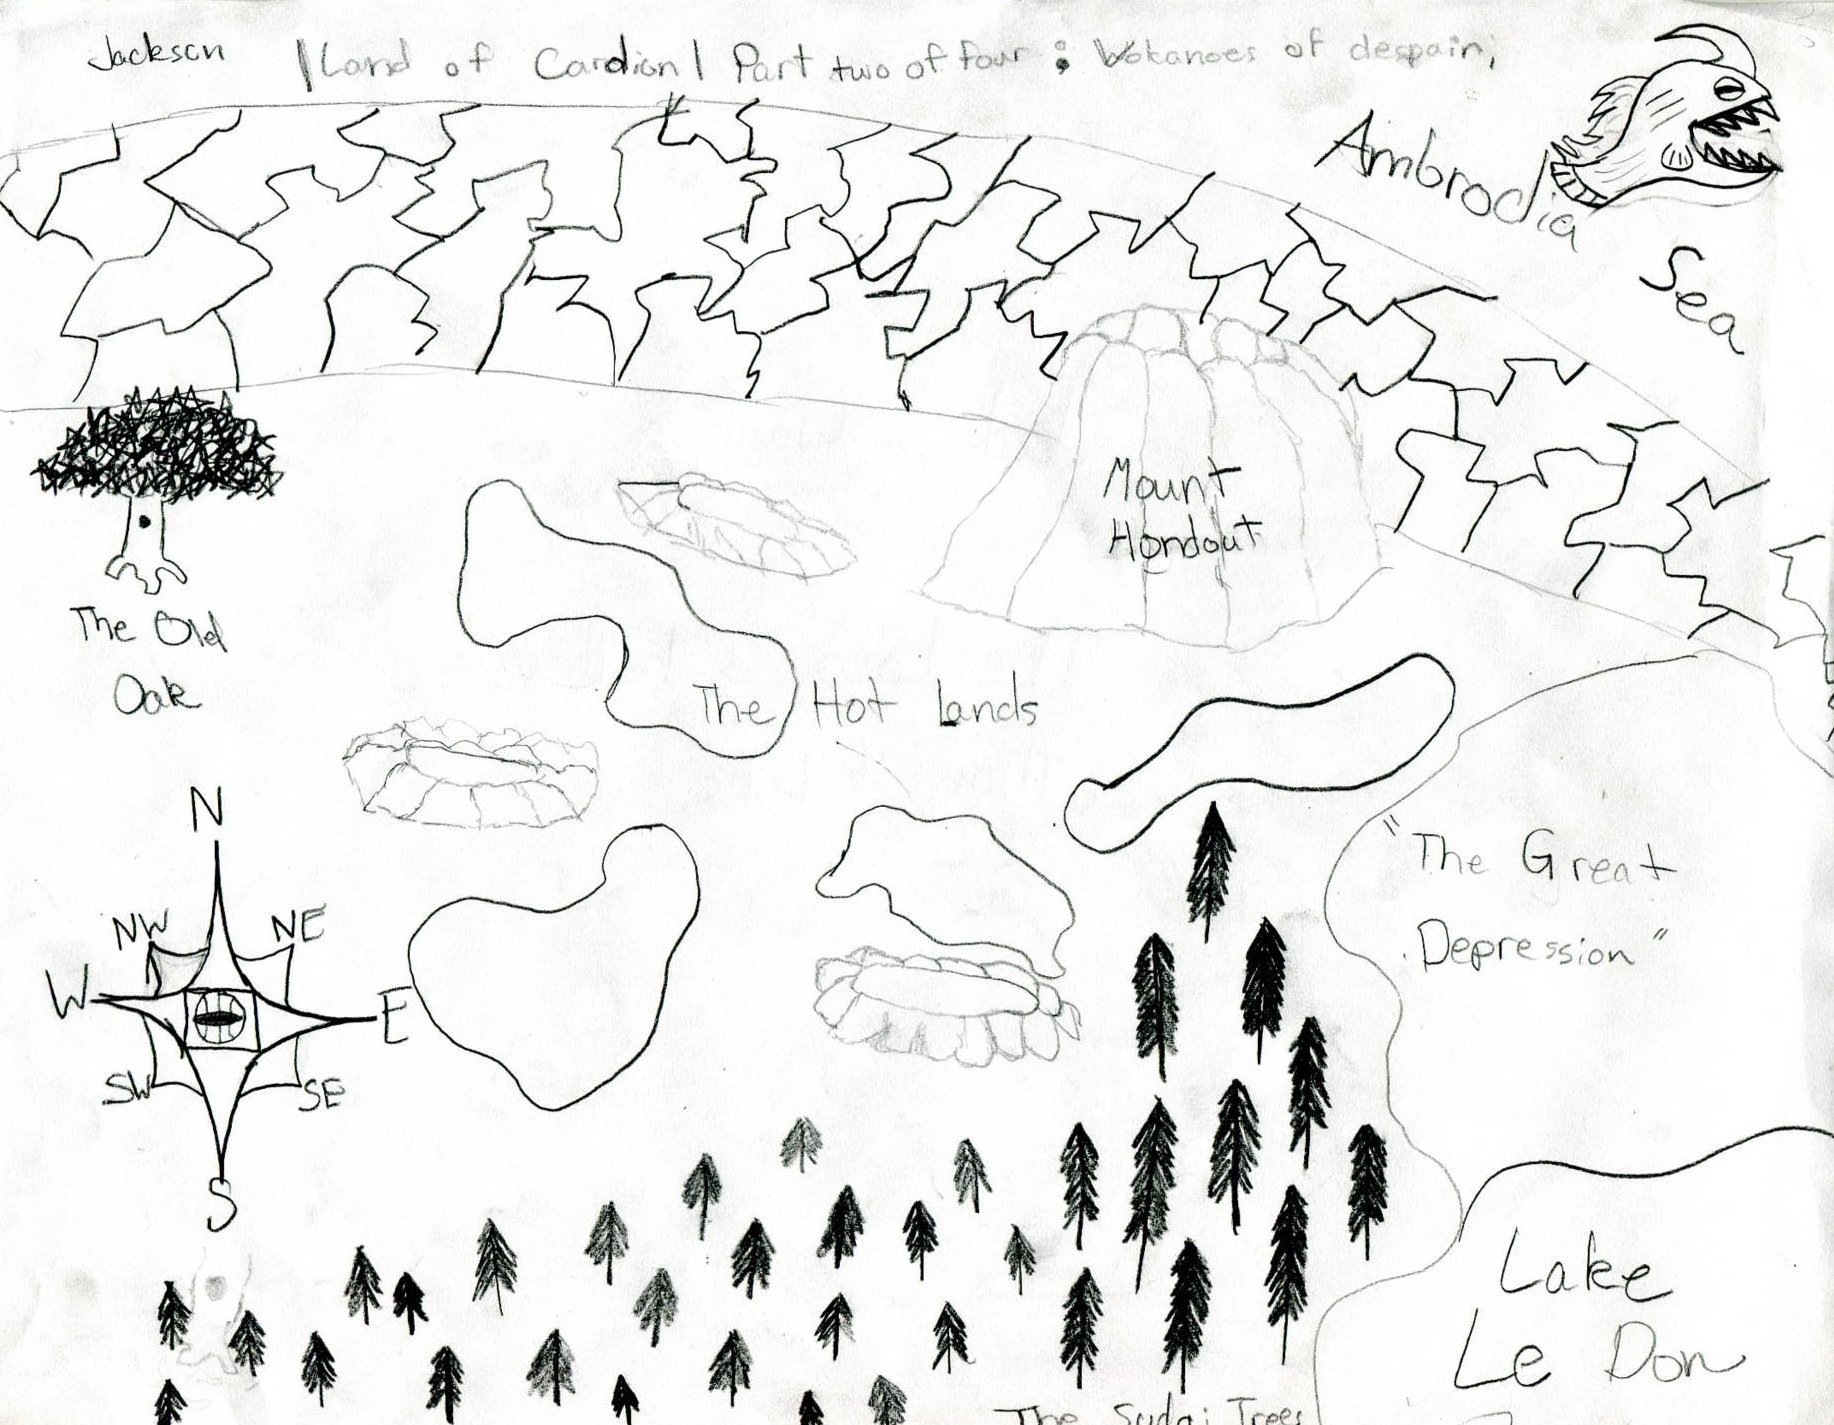 Jackson |Land of Cardion| Part two of four : Volkanoes of despair;
Ambrodia
Sea
Mount
Hondout
The Old
Oak
The Hot Lands
N
NW NE
W E
SW SE
S
"The Great
Depression"
Lake
Le Don
The Sudai Trees